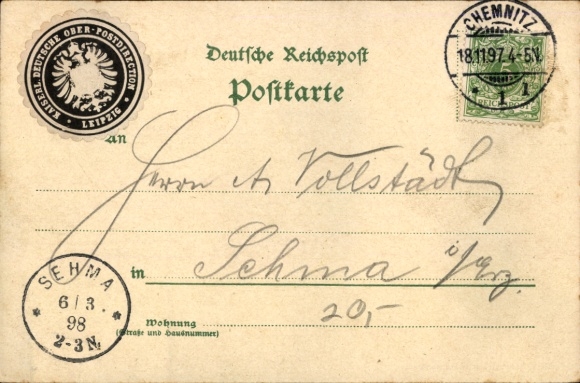 KAISERL. DEUTSCHE OBER-POSTDIRECTION
• LEIPZIG •
Deutsche Reichspost
Postkarte
CHEMNITZ
18.11.97. 4-5N.
* 1 1
REICHSPOST
An
Herrn A Vollstädt
in Sehma i/Erz.
20,-
Wohnung
(Straße und Hausnummer)
SEHMA
* 6/3 *
98
2-3N.